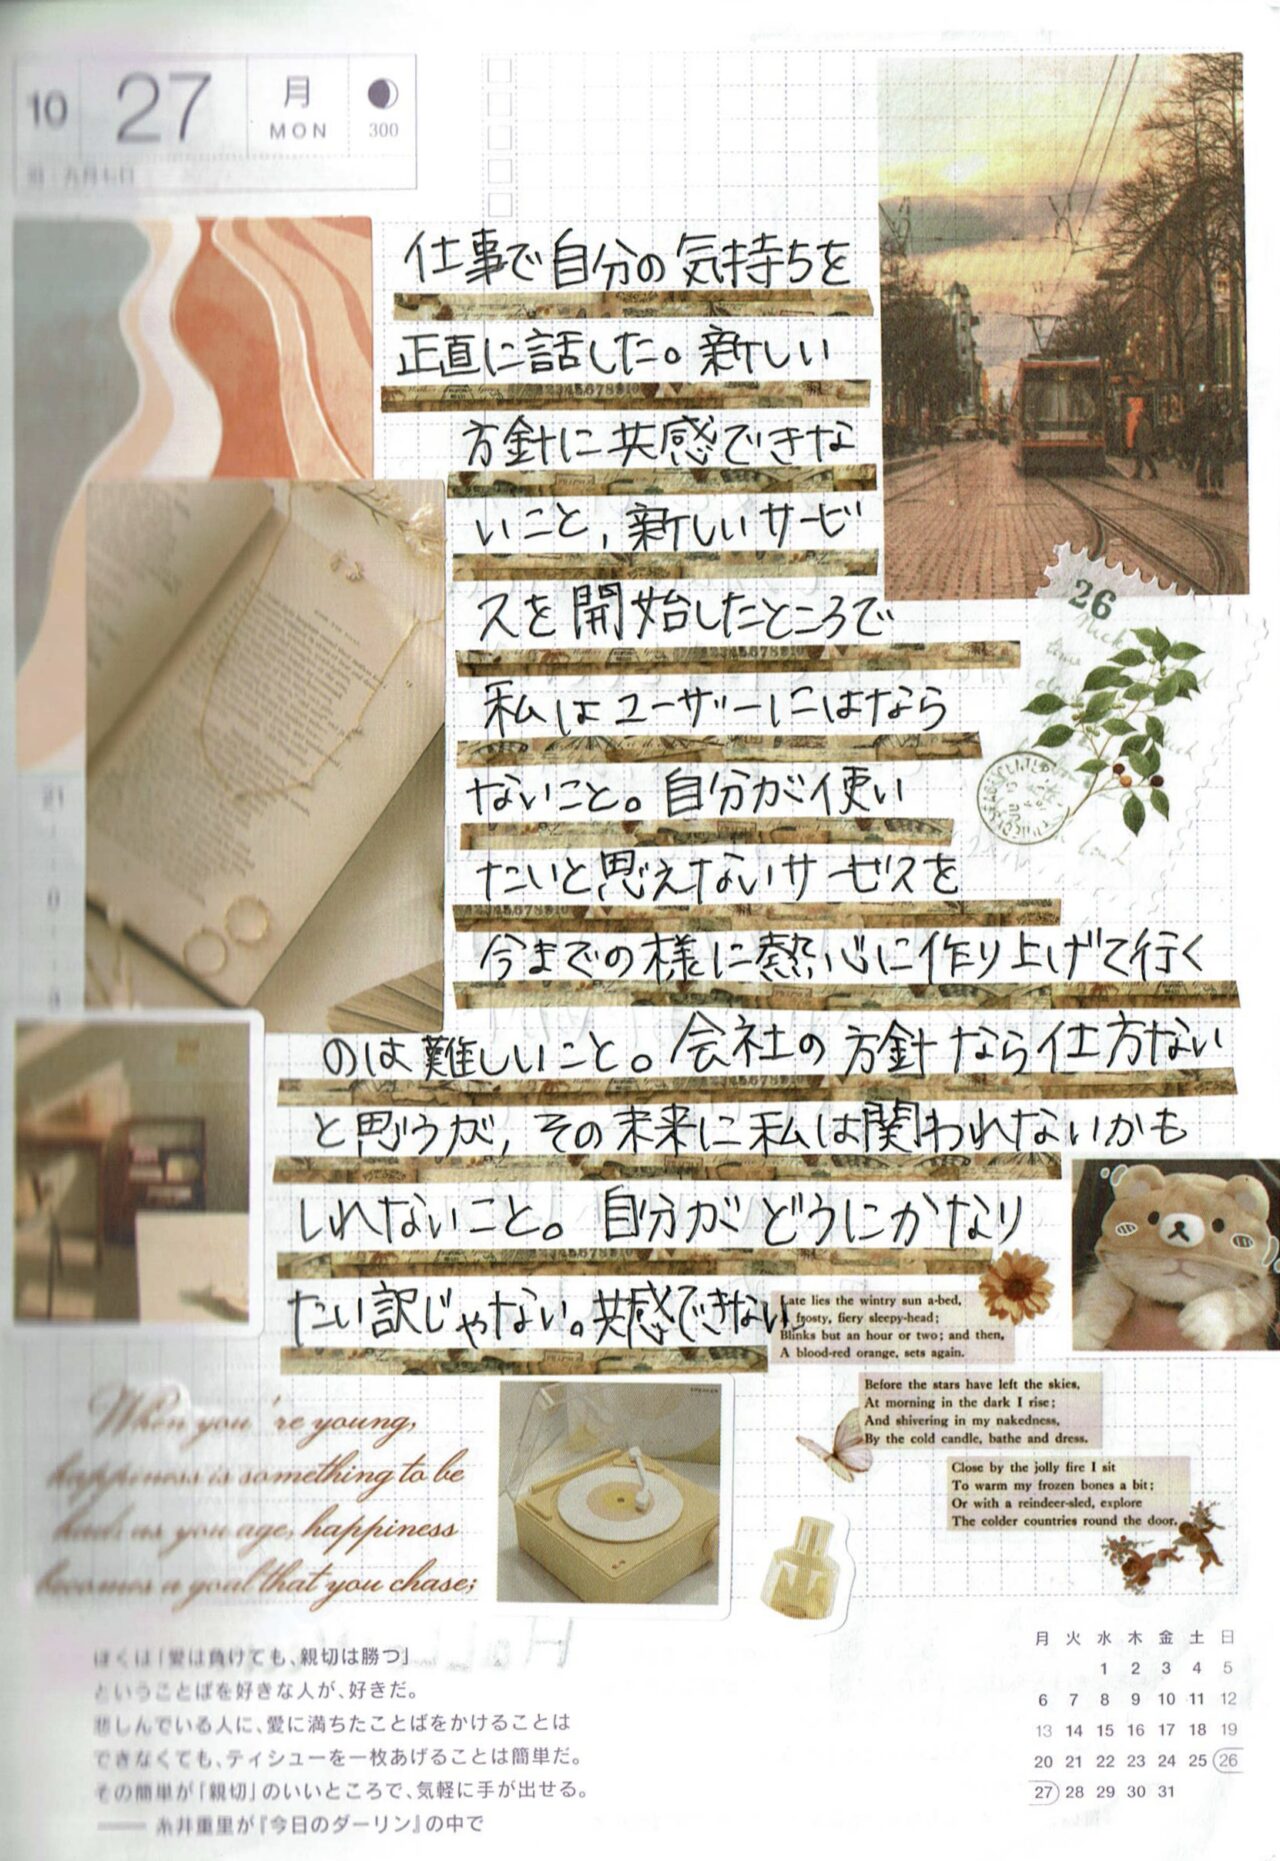 10
27
月
MON
300
仕事で自分の気持ちを
正直に話した。新しい
方針に共感できな
いこと, 新しいサービ
スを開始したところで
私はユーザーにはなら
ないこと。自分が使い
たいと思えないサービスを
今までの様に熱心に作り上げて行く
のは難しいこと。会社の方針なら仕方ない
と思うが, その未来に私は関われないかも
しれないこと。自分がどうにかなり
たい訳じゃない。共感できない。
26
21
Late lies the wintry sun a-bed,
A frosty, fiery sleepy-head;
Blinks but an hour or two; and then,
A blood-red orange, sets again.
Before the stars have left the skies,
At morning in the dark I rise;
And shivering in my nakedness,
By the cold candle, bathe and dress.
Close by the jolly fire I sit
To warm my frozen bones a bit;
Or with a reindeer-sled, explore
The colder countries round the door.
When you're young,
happiness is something to be
had; as you age, happiness
becomes a goal that you chase;
ぼくは「愛は負けても、親切は勝つ」
ということばを好きな人が、好きだ。
悲しんでいる人に、愛に満ちたことばをかけることは
できなくても、ティシューを一枚あげることは簡単だ。
その簡単が「親切」のいいところで、気軽に手が出せる。
—— 糸井重里が『今日のダーリン』の中で
月 火 水 木 金 土 日
1 2 3 4 5
6 7 8 9 10 11 12
13 14 15 16 17 18 19
20 21 22 23 24 25 26
27 28 29 30 31